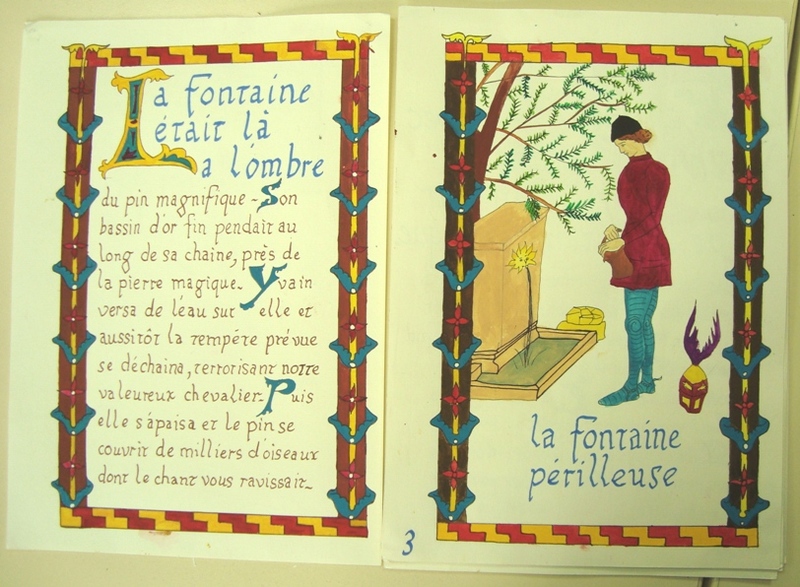 La fontaine
était là
a l'ombre
du pin magnifique - Son
bassin d'or fin pendait au
long de sa chaine, près de
la pierre magique. Yvain
versa de l'eau sur elle et
aussitôt la tempête prévue
se déchaina, terrorisant notre
valeureux chevalier. Puis
elle s'apaisa et le pin se
couvrit de milliers d'oiseaux
dont le chant vous ravissait.
la fontaine
périlleuse
3